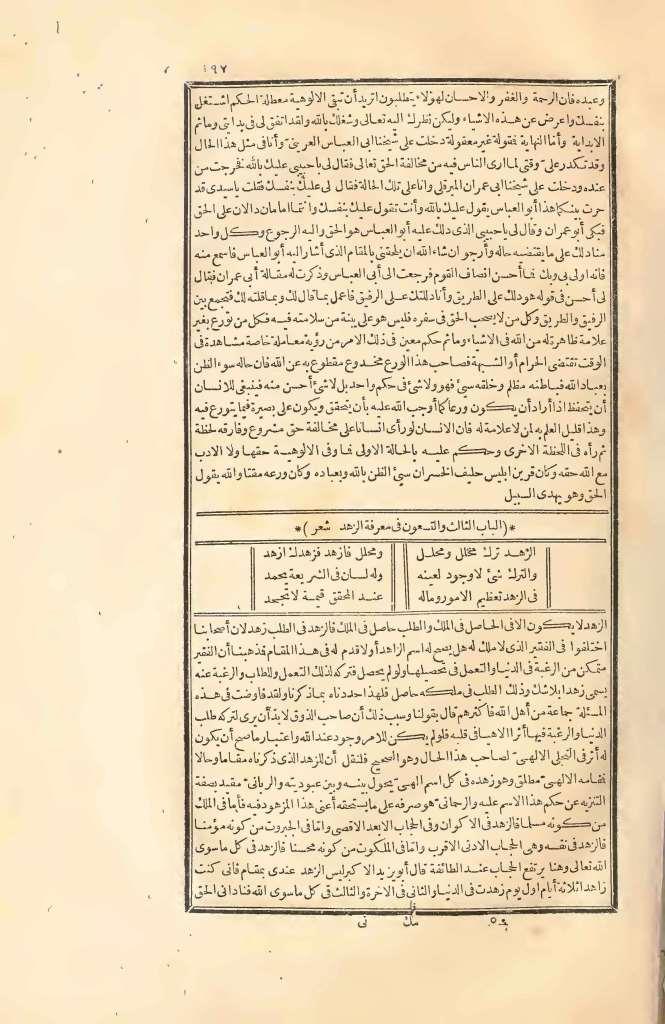 ١٩٧
وعبده فان الرحمة والغفر والاحسان لهؤلاء يتطلبون اتريد أن تبقى الالوهية معطلة الحكم اشتغل
بنفسك واعرض عن هذه الاشياء وليكن نظرك اليه تعالى وشغلك بالله ولقد اتفق لى فى بدايتى وماثم
الابداية وأما النهاية فقولة غير معقولة دخلت على شيخنا ابى العباس العريبى وأنا فى مثل هذا الحال
وقد تكدر على وقتى لما ارى الناس فيه من مخالفة الحق تعالى فقال لى يا حبيبى عليك بالله فخرجت من
عنده ودخلت على شيخنا ابى عمران الميرتلى وانا على تلك الحالة فقال لى عليك بنفسك فقلت يا سيدى قد
حرت بينكما هذا أبو العباس يقول عليك بالله وأنت تقول عليك بنفسك وانتما امامان دالان على الحق
فبكى أبو عمران وقال لى يا حبيبى الذى دلك عليه أبو العباس هو الحق واليه الرجوع وكل واحد
منا دلك على ما يقتضيه حاله وأرجو ان شاء الله ان يلحقنى بالمقام الذى أشار اليه أبو العباس فاسمع منه
فانه اولى بى وبك فما أحسن انصاف القوم فرجعت الى أبى العباس وذكرت له مقالة أبى عمران فقال
لى أحسن فى قوله هو دلك على الطريق وأنا دللتك على الرفيق فاعمل بما قال لك وبما قلته لك فتجمع بين
الرفيق والطريق وكل من لا يصحب الحق فى سفره فليس هو على بينة من سلامته فيه فكل من تورع بغير
علامة ظاهرة له من الله فى الاشياء وماثم حكم معين فى ذلك الامر من رؤية معاملة خاصة مشاهدة فى
الوقت تقتضى الحرام أو الشبهة فصاحب هذا الورع مخدوع مقطوع به عن الله فان حاله سوء الظن
بعباد الله فباطنه مظلم وخلقه سيئ فهو ولا شئ فى حكم واحد بل لا شئ أحسن منه فينبغى للانسان
أن يتحفظ اذا أراد أن يكون ورعا كما أوجب الله عليه بأن يتحقق ويكون على بصيرة فيما يتورع فيه
وهذا قليل العلم به لمن لا علامة له فان الانسان لو رأى انسانا على مخالفة حق مشروع وفارقه لحظة
ثم رآه فى اللحظة الاخرى وحكم عليه بالحالة الاولى فما وفى الالوهية حقها ولا الادب
مع الله حقه وكان قرين ابليس حليف الخسران سيئ الظن بالله وبعباده وكان ورعه مقتا والله يقول
الحق وهو يهدى السبيل
*(الباب الثالث والتسعون فى معرفة الزهد شعر)*
الزهد ترك محلل ومحلل ومحلل فازهد فزهدك ازهد
والترك شئ لا وجود لعينه وله لسان فى الشريعة يحمد
فى الزهد تعظيم الامور وماله عند المحقق قيمة لا تجحد
الزهد لا يكون الا فى الحاصل فى الملك والطلب حاصل فى الملك فالزهد فى الطلب زهد لان أصحابنا
اختلفوا فى الفقير الذى لا ملك له هل يصح له اسم الزاهد أو لا قدم له فى هذا المقام فذهبنا أن الفقير
متمكن من الرغبة فى الدنيا والتعمل فى تحصيلها ولو لم يحصل فتركه لذلك التعمل وللطلب والرغبة عنه
يسمى زهدا بلا شك وذلك الطلب فى ملكه حاصل فلهذا حددناه بما ذكرنا ولقد فاوضت فى هذه
المسئلة جماعة من أهل الله فأكثرهم قال بقولنا وسبب ذلك أن صاحب الذوق لا بد أن يرى لتركه طلب
الدنيا والرغبة فيها أثرا الاهيا فى قلبه فلو لم يكن للامر وجود عند الله واعتبار ما صح أن يكون
له أثر فى التجلى الالهى لصاحب هذا الحال وهو الصحيح فلنقل أن للزهد الذى ذكرناه مقاما وحالا
فمقامه الالهى مطلق وهو زهده فى كل اسم الهى يحول بينه وبين عبوديته والربانى مقيد بصفة
التنزيه عن حكم هذا الاسم عليه والرحمانى هو صرفه على ما يستحقه أعنى هذا المزهود فيه فأما فى الملك
من كونه مسلما فالزهد فى الاكوان وفى الحجاب الابعد الاقصى واما فى الجبروت من كونه مؤمنا
فالزهد فى نفسه وهى الحجاب الادنى الاقرب واما فى الملكوت من كونه محسنا فالزهد فى كل ما سوى
الله تعالى وهنا يرتفع الحجاب عند الطائفة قال أبو يزيد الاكبر ليس الزهد عندى بمقام فانى كنت
زاهدا ثلاثة أيام اول يوم زهدت فى الدنيا والثانى فى الاخرة والثالث فى كل ما سوى الله فنادانى الحق
مك نى